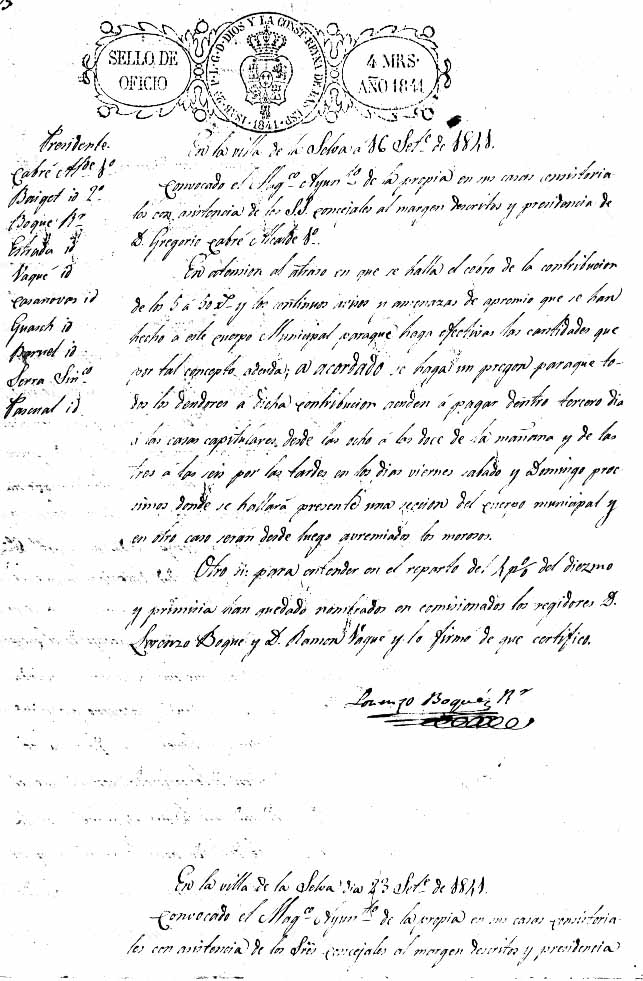 SELLO DE
OFICIO
YSABEL 2ª P. L. G. D. DIOS Y LA CONST. REYNA DE LAS ESP.
1841
4 MRS.
AÑO 1841
Presidente
Cabré Alde 1º
Baiget id 2º
Boqué Rr
Estrada id
Vaqué id
Casanovas id
Guasch id
Barvel id
Serra Sinco
Pascual id
En la villa de la Selva a 16 Sete de 1841.
Convocado el Magco Ayunto de la propia en sus casas consistoria
les con asistencia de los SS. concejales al margen descritos y presidencia de
D. Gregorio Cabré Alcalde 1º.
En atension al atraso en que se halla el cobro de la contribucion
de los 5 á 50 y los continuos avisos y amenazas de apremio que se han
hecho a este cuerpo Municipal paraque haga efectivas las cantidades que
por tal concepto adeuda; a acordado se haga un pregon paraque to-
dos los deudores a dicha contribucion acuden á pagar dentro tercero dia
á las casas capitulares, desde las ocho á las doce de la mañana y de las
tres á las seis por las tardes en los dias viernes sabado y Domingo proc
simos donde se hallará presente una seccion del cuerpo municipal y
en otro caso serán desde luego apremiados los morosos.
Otro si: para entender en el reparto del 4 p% del diezmo
y primicia han quedado nombrados en comisionados los regidores D.
Lorenzo Boqué y D. Ramon Vaqué y lo firmó de que certifico.
Lorenzo Boqué, Rr
En la villa de la Selva dia 23 Sete de 1841.
Convocado el Magco Ayunto de la propia en sus casas consistoria-
les con asistencia de los Sres concejales al margen descritos y presidencia